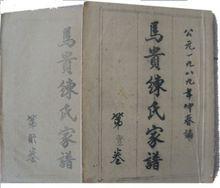 公元一九八九年仲春编
馬貴練氏家譜
第壹卷
馬貴練氏家譜
第貳卷